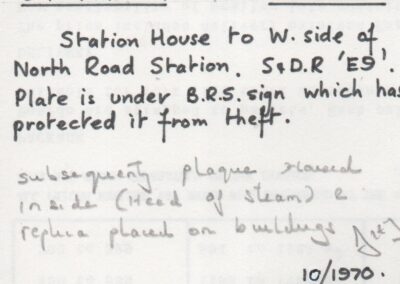 Station House to W. side of
North Road Station. S&D.R 'E9'.
Plate is under B.R.S. sign which has
protected it from theft.
subsequently plaque moved
inside (Head of Steam) &
replica placed on buildings
10/1970.